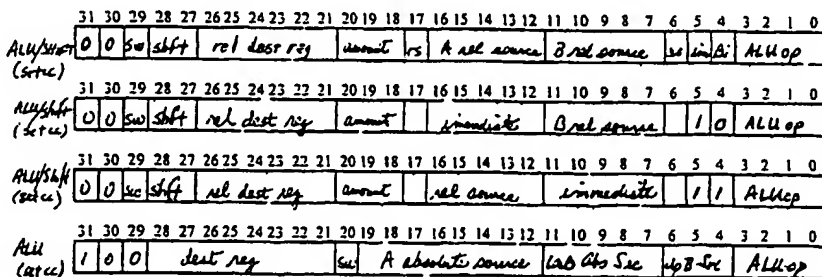 31 30 29 28 27 26 25 24 23 22 21 20 19 18 17 16 15 14 13 12 11 10 9 8 7 6 5 4 3 2 1 0
ALU/Shift 0 0 sw shft rel dest reg amount rs A rel source B rel source im Bi ALU op
(setcc)
31 30 29 28 27 26 25 24 23 22 21 20 19 18 17 16 15 14 13 12 11 10 9 8 7 6 5 4 3 2 1 0
ALU/Shift 0 0 sw shft rel dist rig amount immediate B rel source 1 0 ALU op
(setcc)
31 30 29 28 27 26 25 24 23 22 21 20 19 18 17 16 15 14 13 12 11 10 9 8 7 6 5 4 3 2 1 0
ALU/Shft 0 0 shft rel dest reg amount rel source immediate 1 1 ALU op
(setcc)
31 30 29 28 27 26 25 24 23 22 21 20 19 18 17 16 15 14 13 12 11 10 9 8 7 6 5 4 3 2 1 0
ALU 1 0 0 dest reg sw A absolute source Abs Src B Src ALU op
(setcc)